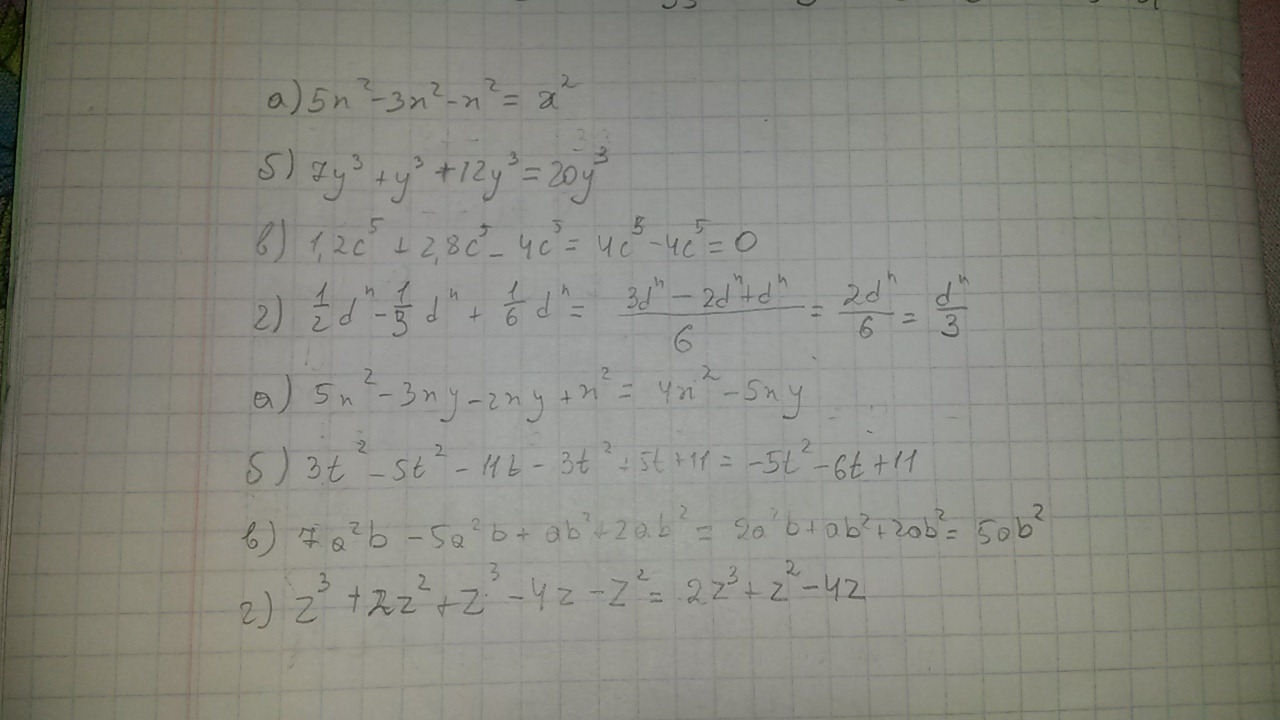 а) 5x² - 3x² - x² = x²
б) 7y³ + y³ + 12y³ = 20y³
в) 1,2c⁵ + 2,8c⁵ - 4c⁵ = 4c⁵ - 4c⁵ = 0
г) 1/2 dⁿ - 1/3 dⁿ + 1/6 dⁿ = (3dⁿ - 2dⁿ + dⁿ)/6 = 2dⁿ/6 = dⁿ/3
а) 5x² - 3xy - 2xy + x² = 4x² - 5xy
б) 3t² - 5t² - 11t - 3t² + 5t + 11 = -5t² - 6t + 11
в) 7a²b - 5a²b + ab² + 2ab² = 2a²b + ab² + 2ab² = 5ab²
г) z³ + 2z² + z³ - 4z - z² = 2z³ + z² - 4z